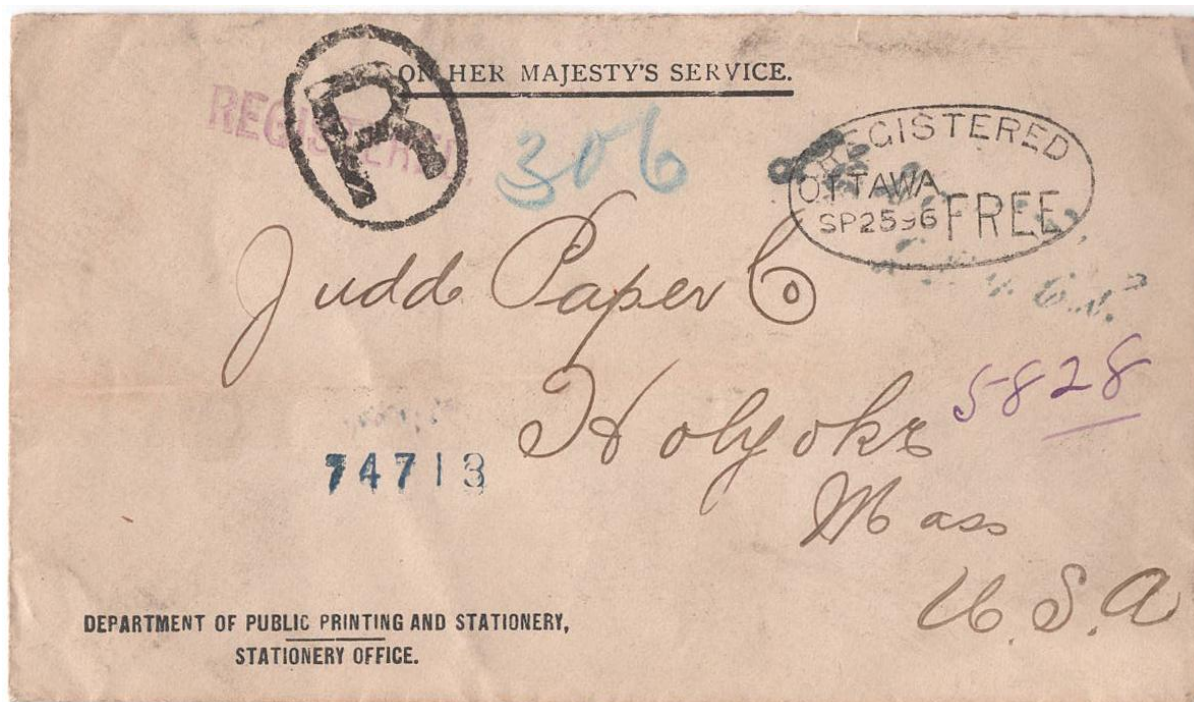 ON HER MAJESTY'S SERVICE.
REGISTERED.
R
306
REGISTERED
OTTAWA
SP 25 96 FREE
Judd Paper Co
Holyoke
5828
Mass
U.S.A
74713
DEPARTMENT OF PUBLIC PRINTING AND STATIONERY,
STATIONERY OFFICE.